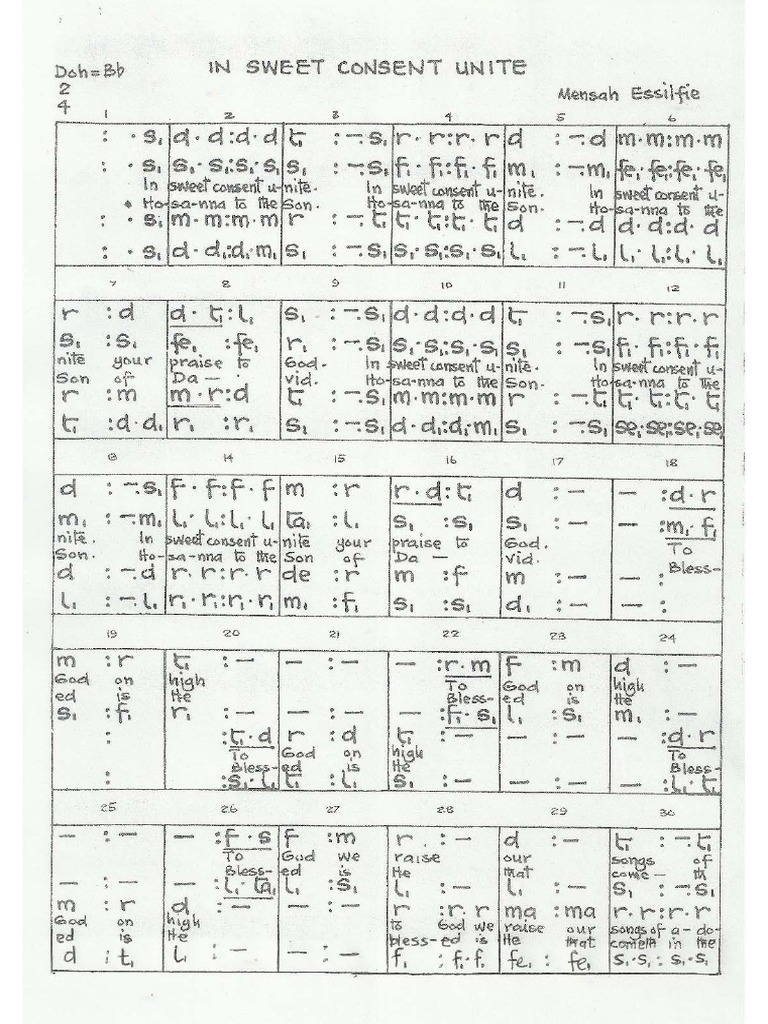 IN SWEET CONSENT UNITE
Doh=Bb
2
4
Mensah Essilfie
1 2 3 4 5 6
: · s₁ | d · d : d · d | t₁ : – · s₁ | r · r : r · r | d : – · d | m · m : m · m
: · s₁ | s₁ · s₁ : s₁ · s₁ | s₁ : – · s₁ | f₁ · f₁ : f₁ · f₁ | m₁ : – · m₁ | fe₁ · fe₁ : fe₁ · fe₁
In sweet consent u-nite. In sweet consent u-nite. In sweet consent u-
Ho-sanna to the Son. Ho-sa-nna to the Son. Ho-sa-nna to the
: · s₁ | m · m : m · m | r : – · t₁ | t₁ · t₁ : t₁ · t₁ | d : – · d | d · d : d · d
: · s₁ | d · d₁ : d₁ · m₁ | s₁ : – · s₁ | s₁ · s₁ : s₁ · s₁ | l₁ : – · l₁ | l₁ · l₁ : l₁ · l₁
7 8 9 10 11 12
r : d | d · t₁ : l₁ | s₁ : – · s₁ | d · d : d · d | t₁ : – · s₁ | r · r : r · r
s₁ : s₁ | fe₁ : fe₁ | r₁ : – · s₁ | s₁ · s₁ : s₁ · s₁ | s₁ : – · s₁ | f₁ · f₁ : f₁ · f₁
nite your praise to God. In sweet consent u-nite. In sweet consent u-
Son of Da – vid. Ho-sa-nna to the Son. Ho-sa-nna to the
r : m | m · r : d | t₁ : – · s₁ | m · m : m · m | r : – · t₁ | t₁ · t₁ : t₁ · t₁
t₁ : d · d₁ | r₁ : r₁ | s₁ : – · s₁ | d · d₁ : d₁ · m₁ | s₁ : – · s₁ | se₁ · se₁ : se₁ · se₁
13 14 15 16 17 18
d : – · s₁ | f · f : f · f | m : r | r · d : t₁ | d : – | – : d · r
m₁ : – · m₁ | l₁ · l₁ : l₁ · l₁ | ta₁ : l₁ | s₁ : s₁ | s₁ : – | – : m₁ · f₁
nite. In sweet consent u-nite your praise to God. To
Son. Ho-sa-nna to the Son of Da – vid. Bless-
d : – · d | r · r : r · r | de : r | m : f | m : – | – :
l₁ : – · l₁ | r₁ · r₁ : r₁ · r₁ | m₁ : f₁ | s₁ : s₁ | d₁ : – | – :
19 20 21 22 23 24
m : r | t₁ : – | – : – | – : r · m | f : m | d : –
God on high To God on high
ed is He Bless-ed is He
s₁ : f₁ | r₁ : – | – : – | – : f₁ · s₁ | l₁ : s₁ | m₁ : –
: | : t₁ · d | r : d | t₁ : – | – : – | – : d · r
To God on high To
Bless-ed is He Bless-
: | : s₁ · l₁ | t₁ : l₁ | s₁ : – | – : – | – : l₁ · t₁
25 26 27 28 29 30
– : – | – : f · s | f : m | r : – | d : – | t₁ : – · t₁
To God we raise our songs of
Bless-ed is He that come – th
– : – | – : l₁ · ta₁ | l₁ : s₁ | l₁ : – | l₁ : – | s₁ : – · s₁
m : r | d : – | – : – | r : r · r | ma : ma | r · r : r · r
God on high to God we raise our songs of a-do-
ed is He bless-ed is He that cometh in the
d : t₁ | l₁ : – | – : – | f₁ : f₁ · f₁ | fe₁ : fe₁ | s₁ · s₁ : s₁ · s₁